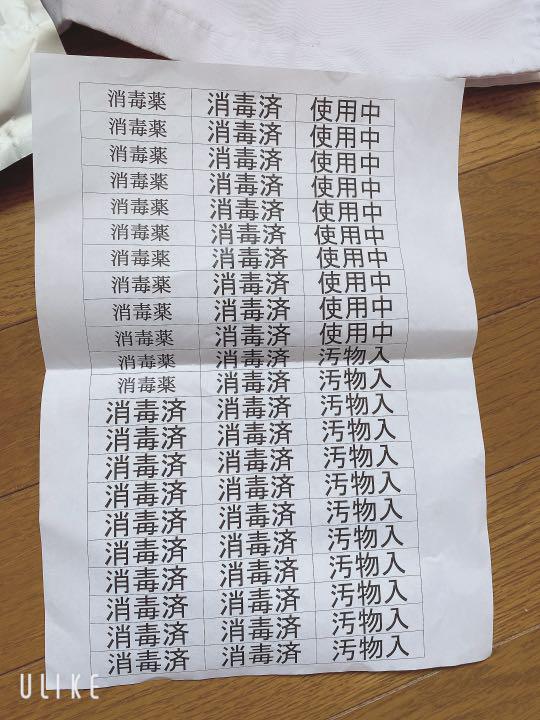 消毒薬 消毒済 使用中
消毒薬 消毒済 使用中
消毒薬 消毒済 使用中
消毒薬 消毒済 使用中
消毒薬 消毒済 使用中
消毒薬 消毒済 使用中
消毒薬 消毒済 使用中
消毒薬 消毒済 使用中
消毒薬 消毒済 使用中
消毒薬 消毒済 使用中
消毒薬 消毒済 汚物入
消毒薬 消毒済 汚物入
消毒済 消毒済 汚物入
消毒済 消毒済 汚物入
消毒済 消毒済 汚物入
消毒済 消毒済 汚物入
消毒済 消毒済 汚物入
消毒済 消毒済 汚物入
消毒済 消毒済 汚物入
消毒済 消毒済 汚物入
消毒済 消毒済 汚物入
消毒済 消毒済 汚物入
ULIKE